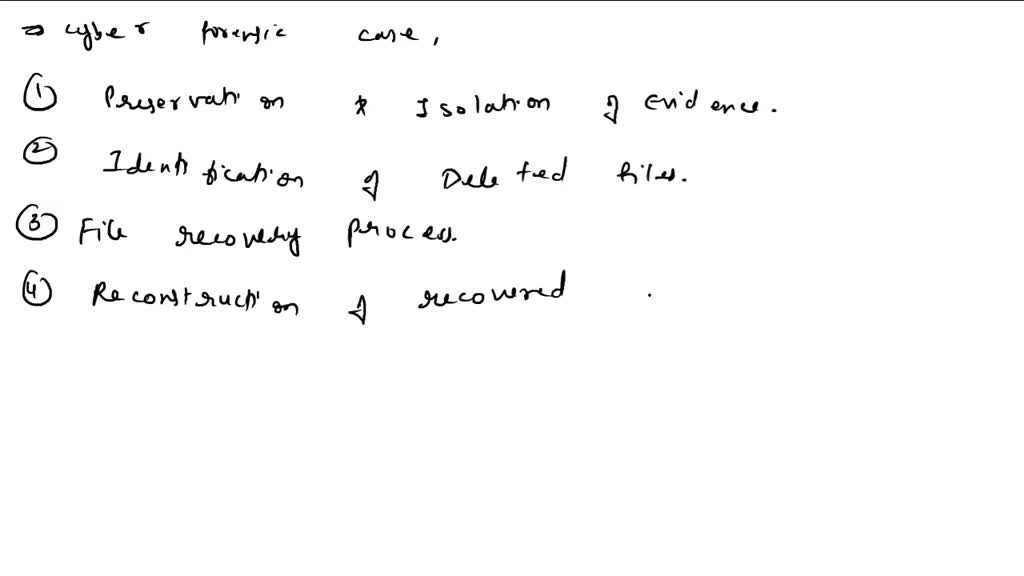 ⇒ cyber forensic case,
① Preservation & Isolation of Evidence.
② Identification of Deleted files.
③ File recovery process.
④ Reconstruction of recovered .